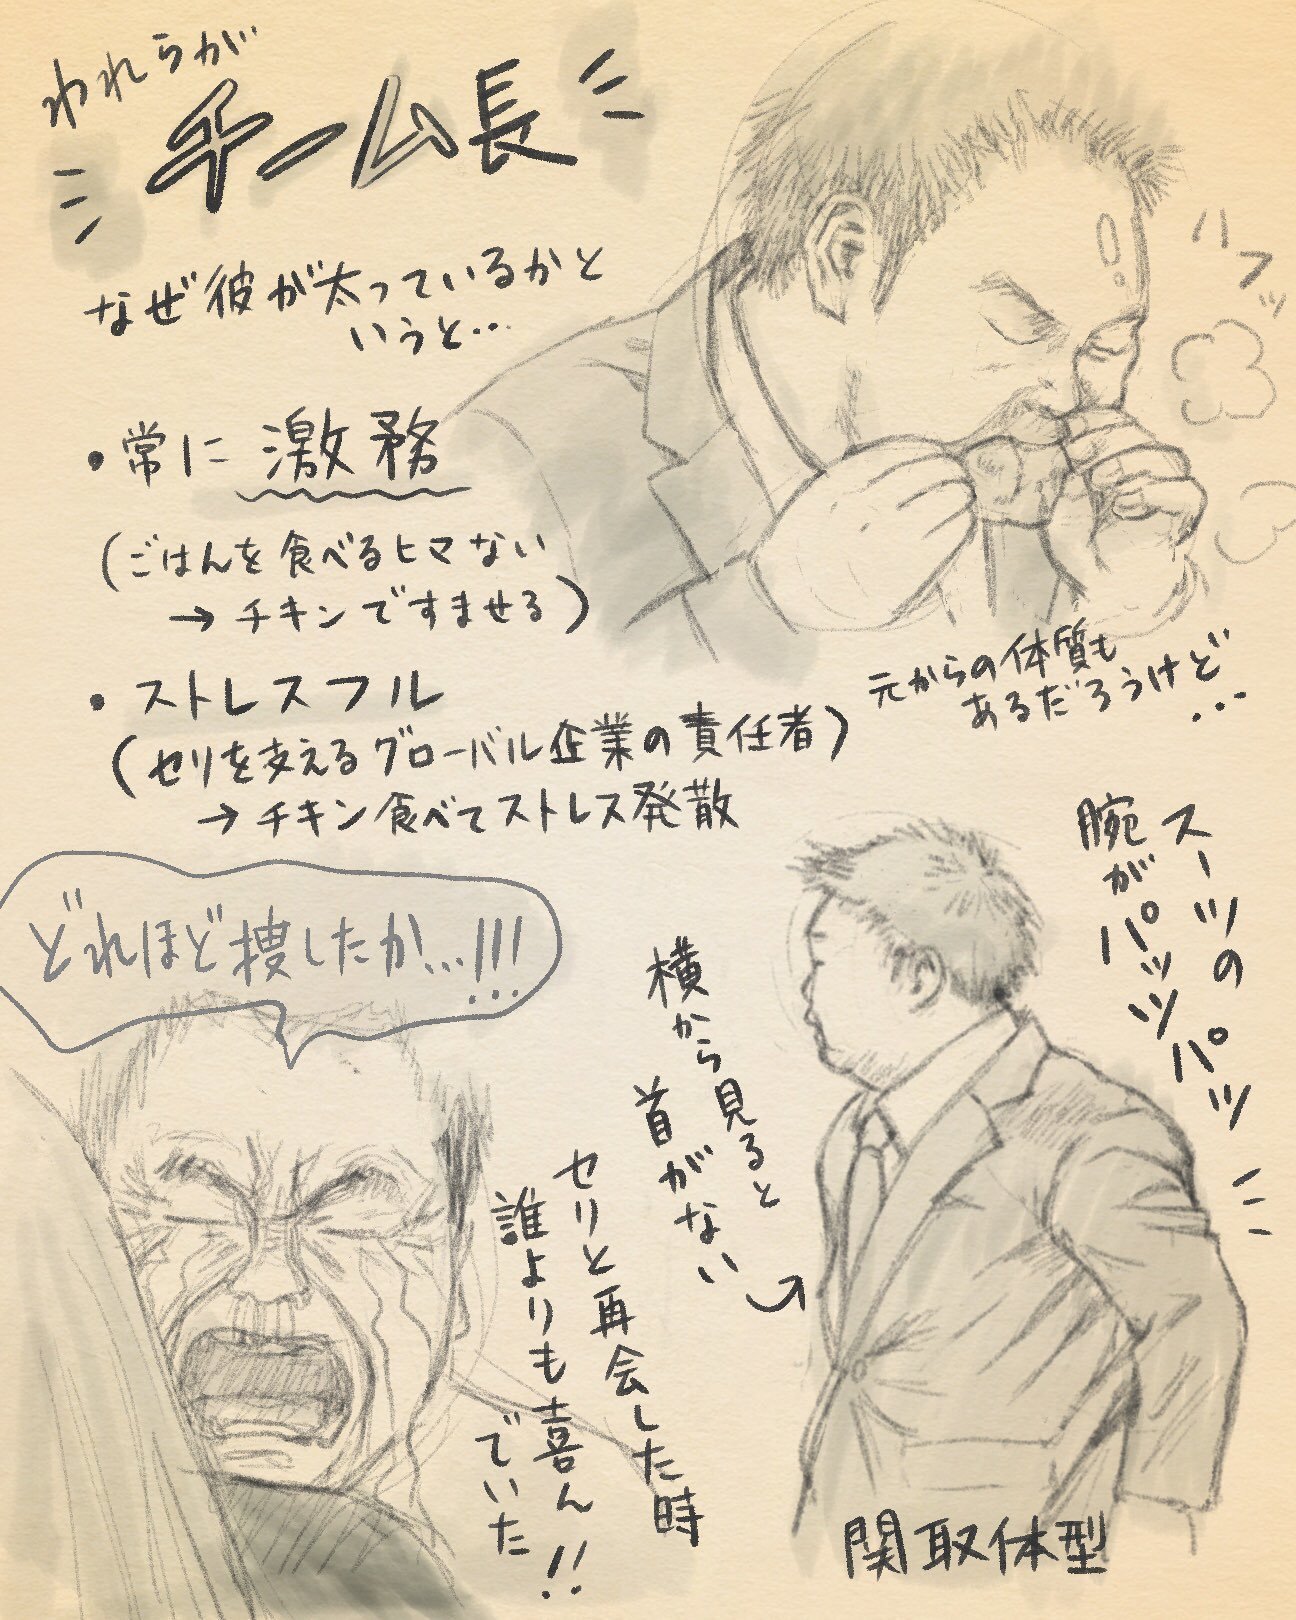 われらが
チーム長
なぜ彼が太っているかと
いうと…
・常に激務
(ごはんを食べるヒマない
→チキンですませる)
・ストレスフル
(セリを支えるグローバル企業の責任者)
→チキン食べてストレス発散
ハフッ
元からの体質も
あるだろうけど…
スーツの
腕がパッツパツ
横から見ると
首がない
関取体型
どれほど捜したか…!!!
セリと再会した時
誰よりも喜ん
でいた!!